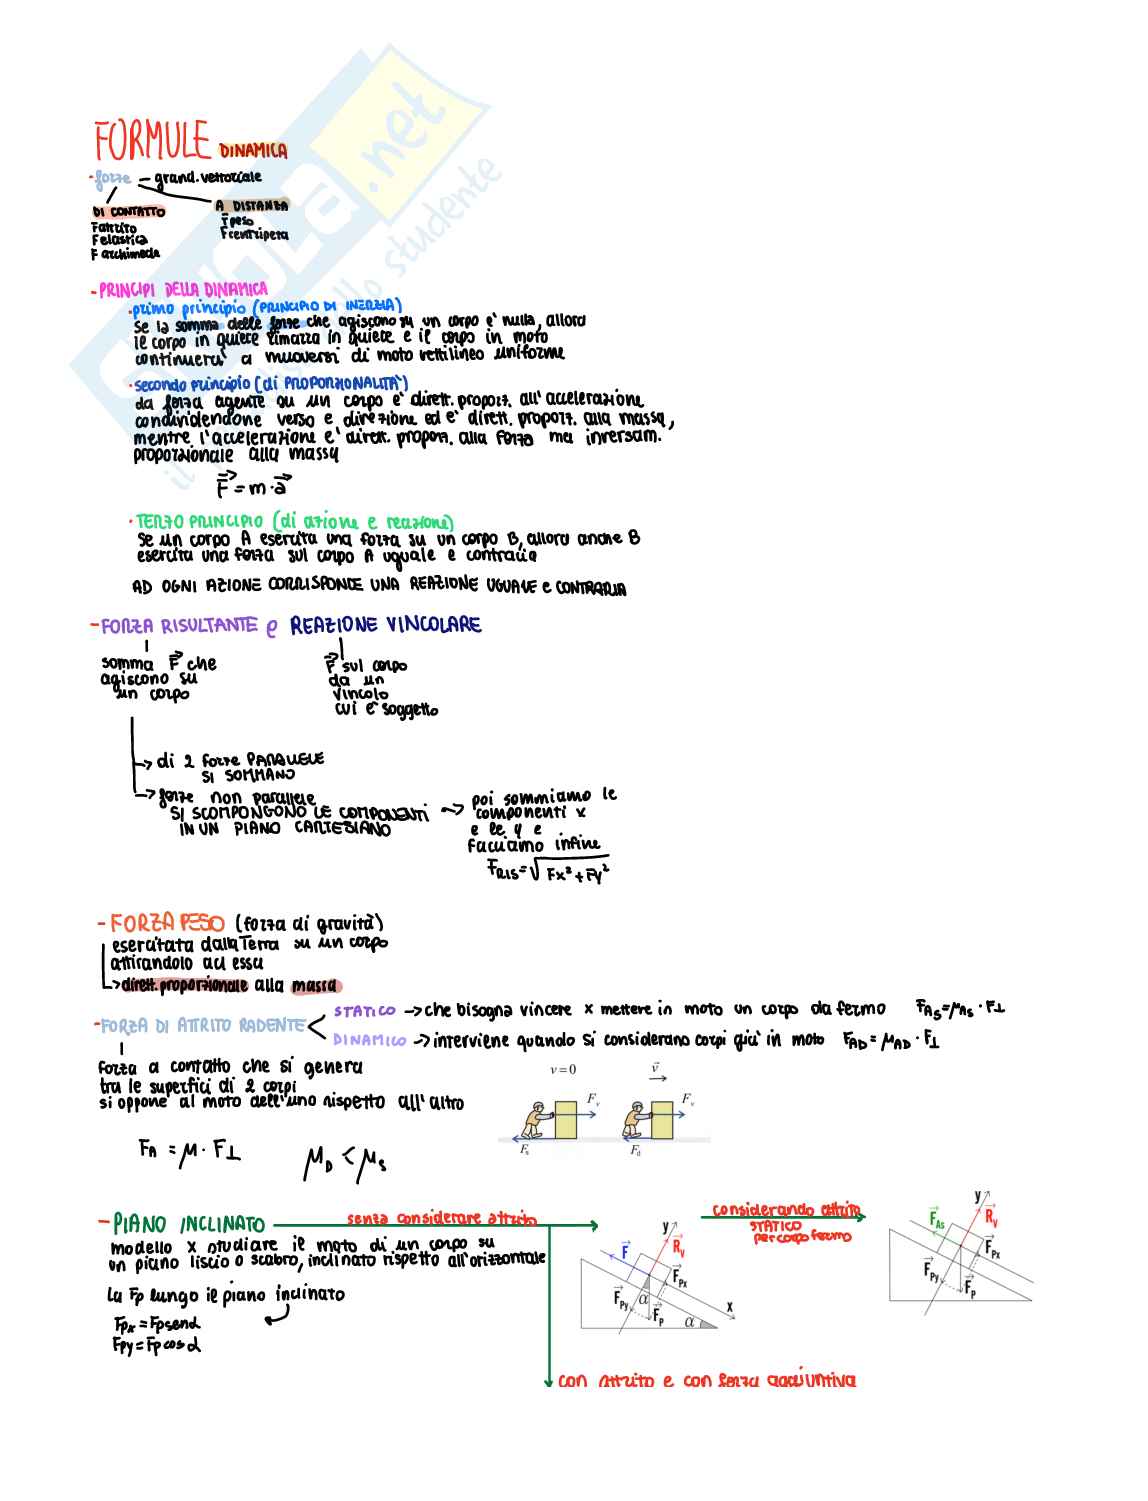 FORMULE DINAMICA
- forze - grand. vettoriale
DI CONTATTO
Fattrito
Felastica
F archimede
A DISTANZA
Fpeso
Fcentripeta
- PRINCIPI DELLA DINAMICA
· primo principio (PRINCIPIO DI INERZIA)
Se la somma delle forze che agiscono su un corpo e' nulla, allora
il corpo in quiete rimarra in quiete e il corpo in moto
continuera' a muoversi di moto rettilineo uniforme
· secondo principio (di PROPORZIONALITA')
da forza agente su un corpo e' dirett. proporz. all'accelerazione
condividendone verso e direzione ed e' dirett. proporz. alla massa,
mentre l'accelerazione e' dirett. proporz. alla forza ma inversam.
proporzionale alla massa
F = m · a
· TERZO PRINCIPIO (di azione e reazione)
Se un corpo A esercita una forza su un corpo B, allora anche B
esercita una forza sul corpo A uguale e contraria
AD OGNI AZIONE CORRISPONDE UNA REAZIONE UGUALE e CONTRARIA
- FORZA RISULTANTE e REAZIONE VINCOLARE
somma F che
agiscono su
un corpo
F sul corpo
da un
vincolo
cui e' soggetto
-> di 2 forze PARALLELE
SI SOMMANO
-> forze non parallele
SI SCOMPONGONO LE COMPONENTI
IN UN PIANO CARTESIANO
-> poi sommiamo le
componenti x
e le y e
facciamo infine
FRIS = √Fx² + Fy²
- FORZA PESO (forza di gravità)
esercitata dalla Terra su un corpo
attirandolo ad essa
-> dirett. proporzionale alla massa
- FORZA DI ATTRITO RADENTE
STATICO -> che bisogna vincere x mettere in moto un corpo da fermo FAs = μAs · F⊥
DINAMICO -> interviene quando si considerano corpi gia' in moto FAD = μAD · F⊥
forza a contatto che si genera
tra le superfici di 2 corpi
si oppone al moto dell'uno rispetto all'altro
FA = μ · F⊥
μD < μs
v = 0
v
Fv
Fv
Fs
Fd
- PIANO INCLINATO
senza considerare attrito
considerando attrito
STATICO
per corpo fermo
modello x studiare il moto di un corpo su
un piano liscio o scabro, inclinato rispetto all'orizzontale
La Fp lungo il piano inclinato
Fpx = Fp senα
Fpy = Fp cos α
y
F
Rv
FPx
FPy
FP
α
α
x
y
FAs
Rv
FPx
FPy
FP
con attrito e con forza aggiuntiva
SKUOLA.net
il paradiso dello studente